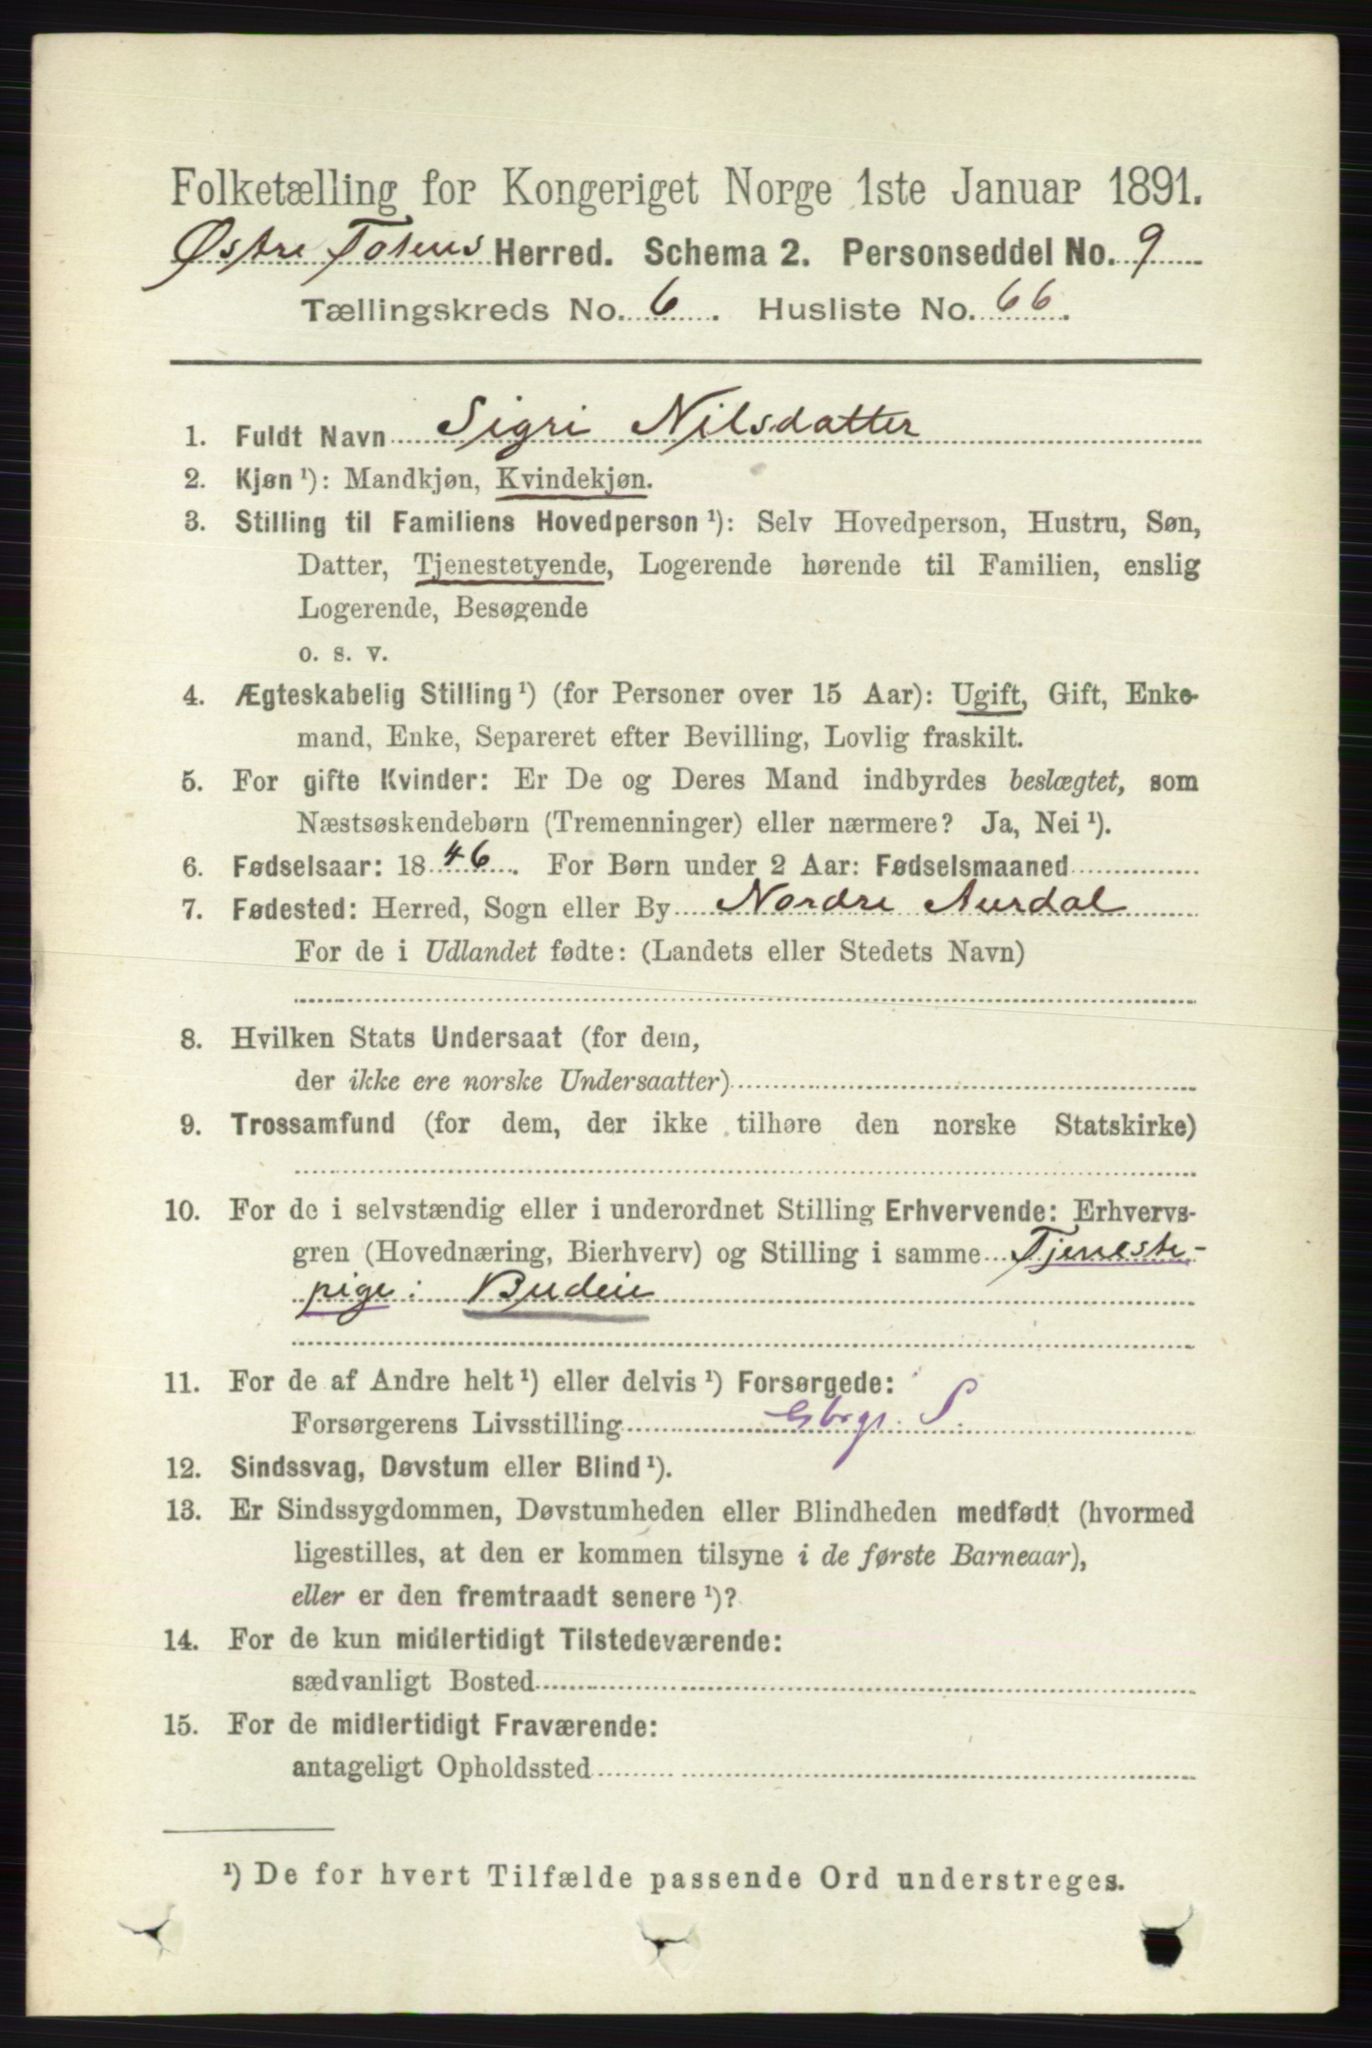 Folketælling for Kongeriget Norge 1ste Januar 1891.
Østre Totens Herred. Schema 2. Personseddel No. 9
Tællingskreds No. 6. Husliste No. 66.
1. Fuldt Navn Sigri Nilsdatter
2. Kjøn ¹): Mandkjøn, Kvindekjøn.
3. Stilling til Familiens Hovedperson ¹): Selv Hovedperson, Hustru, Søn,
Datter, Tjenestetyende, Logerende hørende til Familien, enslig
Logerende, Besøgende
o. s. v.
4. Ægteskabelig Stilling ¹) (for Personer over 15 Aar): Ugift, Gift, Enke-
mand, Enke, Separeret efter Bevilling, Lovlig fraskilt.
5. For gifte Kvinder: Er De og Deres Mand indbyrdes beslægtet, som
Næstsøskendebørn (Tremenninger) eller nærmere? Ja, Nei ¹).
6. Fødselsaar: 1846. For Børn under 2 Aar: Fødselsmaaned
7. Fødested: Herred, Sogn eller By Nordre Aurdal
For de i Udlandet fødte: (Landets eller Stedets Navn)
8. Hvilken Stats Undersaat (for dem,
der ikke ere norske Undersaatter)
9. Trossamfund (for dem, der ikke tilhøre den norske Statskirke)
10. For de i selvstændig eller i underordnet Stilling Erhvervende: Erhvervs-
gren (Hovednæring, Bierhverv) og Stilling i samme Tjeneste-
pige: Budeie
11. For de af Andre helt ¹) eller delvis ¹) Forsørgede:
Forsørgerens Livsstilling Gbrgr. S.
12. Sindssvag, Døvstum eller Blind ¹).
13. Er Sindssygdommen, Døvstumheden eller Blindheden medfødt (hvormed
ligestilles, at den er kommen tilsyne i de første Barneaar),
eller er den fremtraadt senere ¹)?
14. For de kun midlertidigt Tilstedeværende:
sædvanligt Bosted
15. For de midlertidigt Fraværende:
antageligt Opholdssted
¹) De for hvert Tilfælde passende Ord understreges.